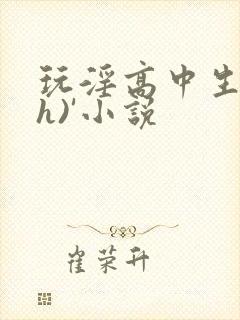 玩淫高中生
h)'小説
崔荣升